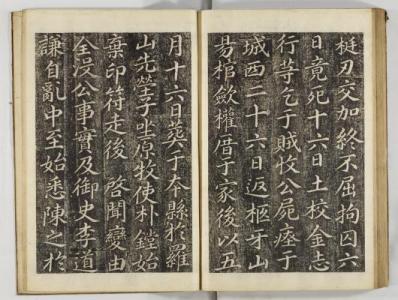 梃刃交加終不屈拘囚六
日竟死十六日土校金志
行等乞于賊收公屍瘞于
城西二十六日返柩牙山
易棺斂權厝于家後以五
月十六日葬于本縣於羅
山先塋子坐原牧使朴鏜始
棄印符走後啓聞變由
全沒公事實及御史李道
謙自亂中至始悉陳之於